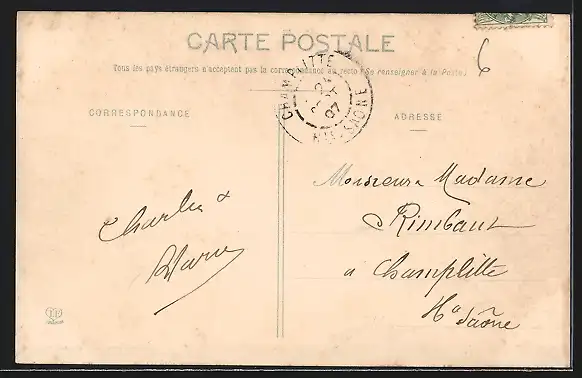 CARTE POSTALE
Tous les pays étrangers n'acceptent pas la correspondance au recto (Se renseigner à la Poste)
6
CHAMPLITTE
07
HTE-SAÔNE
CORRESPONDANCE
ADRESSE
Charles &
Marie
Monsieur & Madame
Rimbaut
a Champlitte
Hte Saône